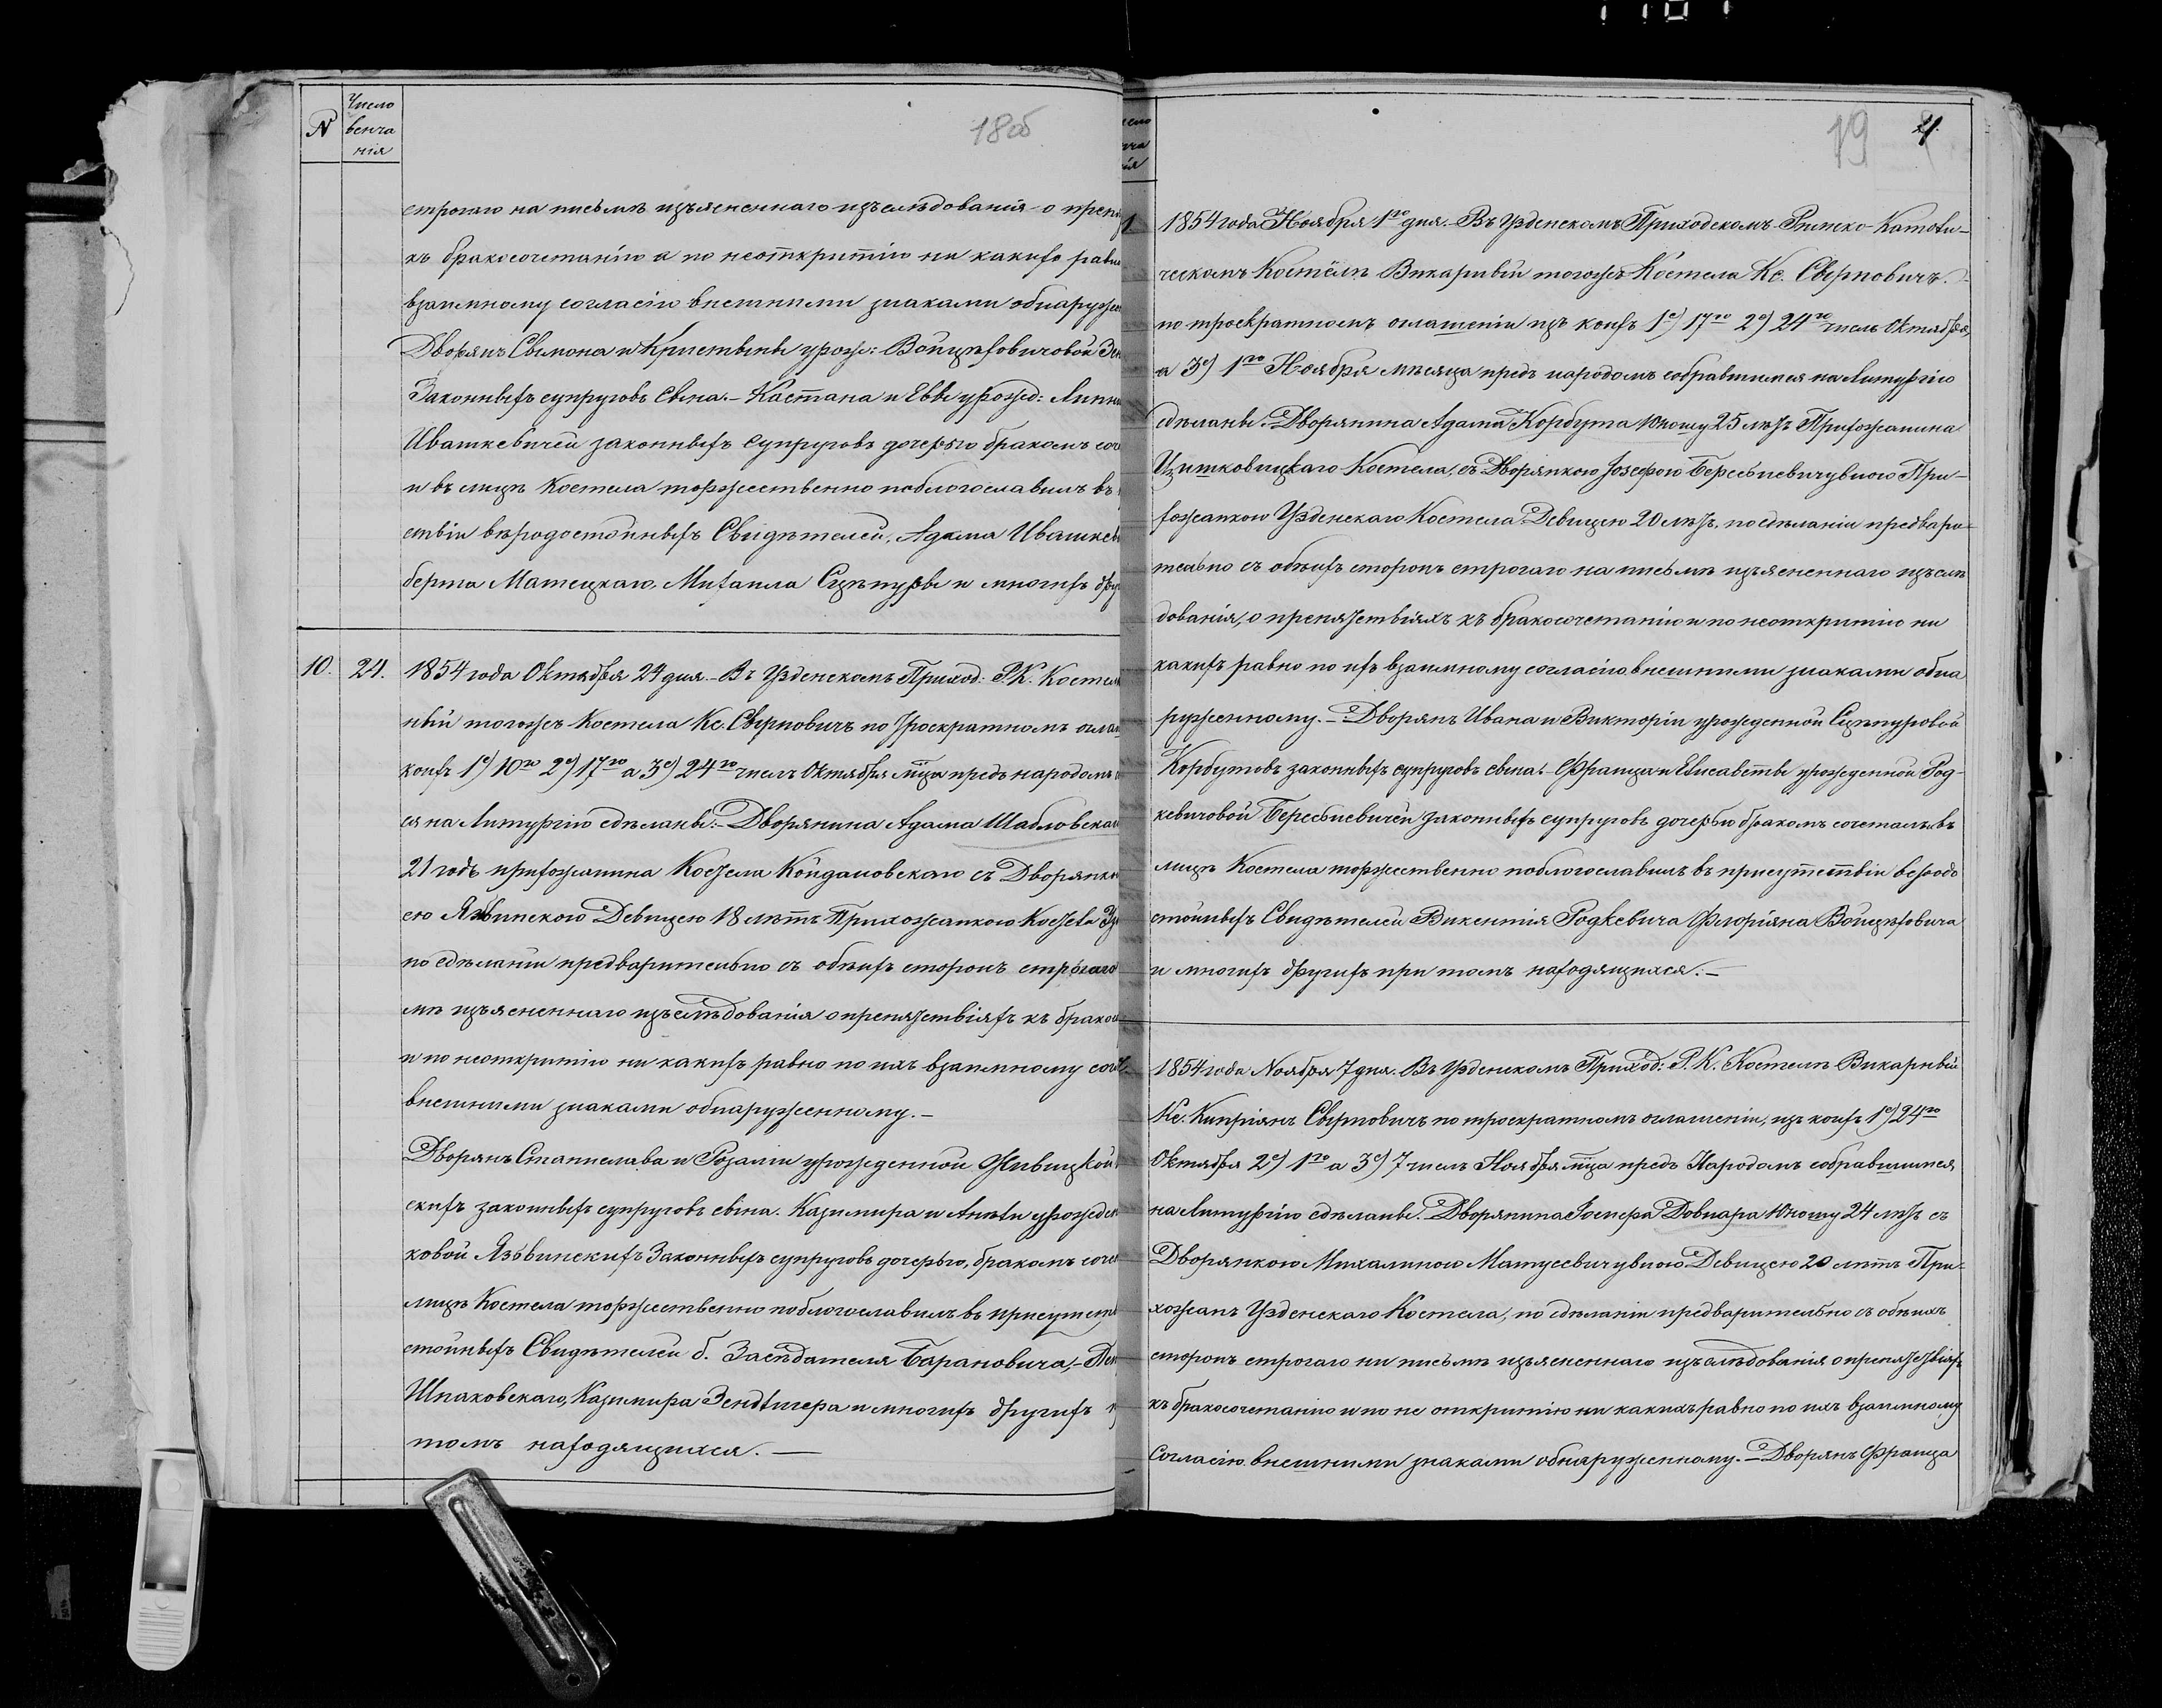 N
Число
венча
нія
18об
строгаго на письмѣ изъясненнаго изслѣдованія о преп
къ бракосочетанію а по неоткритію ни какихъ равн
взаимному согласію внешними знаками обнаруже
Дворянъ Симона и Кристыны урож: Войцѣховичовой
Законныхъ супруговъ сына.- Каэтана и Еввы урожд: Липни
Ивашкевичей законныхъ супруговъ дочерью бракомъ соч
и въ лицѣ Костела торжественно поблогославилъ въ
ствіи вѣродостойныхъ Свидѣтелей, Адама Ивашкев
берта Матецкаго, Михаила Сцѣпуры и многихъ дру
10. 24. 1854 года Октября 24 дня.- Въ Узденскомъ Приход: Р.К. Костел
ный тогожъ Костела Кс. Свирновичъ по троекратномъ оглаш
коихъ 1е) 10го 2е) 17го а 3е) 24го числъ Октября мца предъ народомъ
ся на Литургію сдѣланы:- Дворянина Адама Шабловска
21 годъ прихожанина Костела Койдановскаго съ Дворянк
ею Язвинскою Девицею 18 лѣтъ Прихожанкою Костела Уз
по сдѣланіи предварительно съ обѣихъ сторонъ строгаго
мѣ изъясненнаго изслѣдованія о препятствіяхъ къ брако
и по неоткритію ни какихъ равно по ихъ взаимному сог
внешними знаками обнаруженному.-
Дворянъ Станислава и Розаліи урожденной Живицкой
скихъ законныхъ супруговъ сына. Казимира и Анѣли урожден
ковой Язвинскихъ Законныхъ супруговъ дочерью, бракомъ соче
лицѣ Костела торжественно поблогославилъ въ присутст
стойныхъ Свидѣтелей б. Засѣдателя Барановича,-
Шпаковскаго, Казимира Зендлигера и многихъ другихъ
томъ находящихся.-
19
1854 года Ноября 1го дня.- Въ Узденскомъ Приходскомъ Римско-Католи-
ческомъ Костелѣ Викарный тогожъ Костела Кс. Свирновичъ.
по троекратномъ оглашеніи изъ коихъ 1е) 17го 2е) 24го числъ Октября,
а 3е) 1го Ноября мѣсяца предъ народомъ собравшимся на Литургію
сдѣланы. Дворянина Адама Корбута Юношу 25 лѣтъ Прихожанина
Цитковицкаго Костела, съ Дворянкою Іозефою Бересьневичувною При-
хожанкою Узденскаго Костела Девицею 20 лѣтъ, по сдѣланіи предвари-
тельно съ обѣихъ сторонъ строгаго на письмѣ изъясненнаго изслѣ
дованія, о препятствіяхъ къ бракосочетанію и по неоткритію ни
какихъ равно по ихъ взаимному согласію внешними знаками обна
руженному.- Дворянъ Ивана и Викторіи урожденной Сцѣпуровой
Корбутовъ законныхъ супруговъ сына.- Франца и Елисаветы урожденной Род-
кевичовой Бересьневичей законныхъ супруговъ дочерью бракомъ сочеталъ въ
лицѣ Костела торжественно поблогославилъ въ присутствіи веродо
стойныхъ Свидѣтелей Викентія Родкевича Флоріяна Войцѣховича
и многихъ другихъ при томъ находящихся.-
1854 года Ноября 7 дня. Въ Узденскомъ Приход: Р. К. Костелѣ Викарный
Кс. Кипріянъ Свирновичъ по троекратномъ оглашеніи, изъ коихъ 1е) 24го
Октября 2е) 1го а 3е) 7 числъ Ноября мца предъ Народомъ собравшимся
на Литургію сдѣланы. Дворянина Іосифа Довнара Юношу 24 лѣтъ съ
Дворянкою Михалиною Матусевичувною Девицею 20 лѣтъ При-
хожанъ Узденскаго Костела, по сдѣланіи предварительно съ обѣихъ
сторонъ строгаго на письмѣ изъясненнаго изслѣдованія о препятствіяхъ
къ бракосочетанію и по не открытію ни какихъ равно по ихъ взаимному
Согласію внешними знаками обнаруженному.- Дворянъ Франца